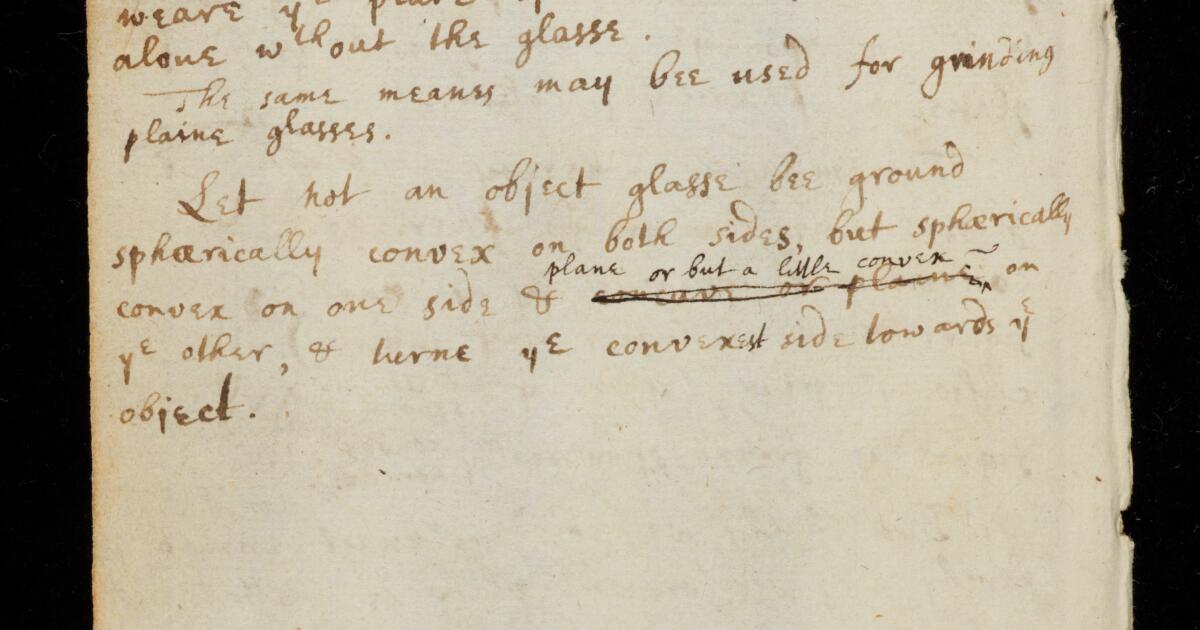 weare yᵉ
alone wᵗʰout the glasse.
The same meanes may bee used for grinding
plaine glasses.
Let not an object glasse bee ground
sphærically convex on both sides, but sphærically
plane or but a little convex
convex on one side & concave or plaine on
yᵉ other, & turne yᵉ convexest side towards yᵉ
object.